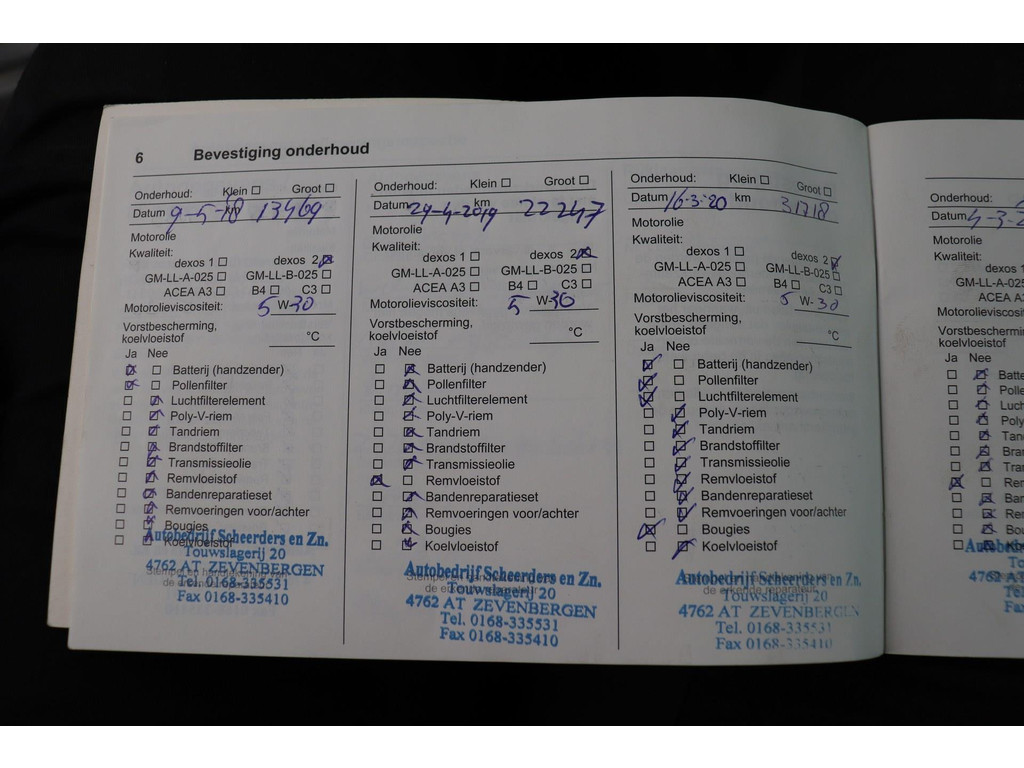 6 Bevestiging onderhoud
Onderhoud: Klein ☐ Groot ☐
Datum 9-5-18 km 13469
Motorolie
Kwaliteit:
dexos 1 ☐ dexos 2 ☒
GM-LL-A-025 ☐ GM-LL-B-025 ☐
ACEA A3 ☐ B4 ☐ C3 ☐
Motorolieviscositeit: 5 W-30
Vorstbescherming,
koelvloeistof °C
Ja Nee
☒ ☐ Batterij (handzender)
☒ ☐ Pollenfilter
☐ ☒ Luchtfilterelement
☐ ☒ Poly-V-riem
☐ ☒ Tandriem
☐ ☒ Brandstoffilter
☐ ☒ Transmissieolie
☐ ☒ Remvloeistof
☐ ☒ Bandenreparatieset
☐ ☒ Remvoeringen voor/achter
☐ ☒ Bougies
☐ ☒ Koelvloeistof
Autobedrijf Scheerders en Zn.
Touwslagerij 20
4762 AT ZEVENBERGEN
Tel. 0168-335531
Fax 0168-335410
Onderhoud: Klein ☐ Groot ☐
Datum 24-4-2019 km 22247
Motorolie
Kwaliteit:
dexos 1 ☐ dexos 2 ☒
GM-LL-A-025 ☐ GM-LL-B-025 ☐
ACEA A3 ☐ B4 ☐ C3 ☐
Motorolieviscositeit: 5 W-30
Vorstbescherming,
koelvloeistof °C
Ja Nee
☐ ☒ Batterij (handzender)
☐ ☒ Pollenfilter
☐ ☒ Luchtfilterelement
☐ ☒ Poly-V-riem
☐ ☒ Tandriem
☐ ☒ Brandstoffilter
☐ ☒ Transmissieolie
☒ ☐ Remvloeistof
☐ ☒ Bandenreparatieset
☐ ☒ Remvoeringen voor/achter
☐ ☒ Bougies
☐ ☒ Koelvloeistof
Autobedrijf Scheerders en Zn.
Touwslagerij 20
4762 AT ZEVENBERGEN
Tel. 0168-335531
Fax 0168-335410
Onderhoud: Klein ☐ Groot ☐
Datum 16-3-20 km 31718
Motorolie
Kwaliteit:
dexos 1 ☐ dexos 2 ☒
GM-LL-A-025 ☐ GM-LL-B-025 ☐
ACEA A3 ☐ B4 ☐ C3 ☐
Motorolieviscositeit: 5 W-30
Vorstbescherming,
koelvloeistof °C
Ja Nee
☒ ☐ Batterij (handzender)
☒ ☐ Pollenfilter
☒ ☐ Luchtfilterelement
☐ ☒ Poly-V-riem
☐ ☒ Tandriem
☐ ☒ Brandstoffilter
☐ ☒ Transmissieolie
☐ ☒ Remvloeistof
☐ ☒ Bandenreparatieset
☐ ☒ Remvoeringen voor/achter
☒ ☐ Bougies
☐ ☒ Koelvloeistof
Autobedrijf Scheerders en Zn.
de erkende reparateur
Touwslagerij 20
4762 AT ZEVENBERGEN
Tel. 0168-335531
Fax 0168-335410
Onderhoud:
Datum 4-3-2
Motorolie
Kwaliteit:
dexos 1
GM-LL-A-025
ACEA A3
Motorolieviscosit
Vorstbeschermin
koelvloeistof
Ja Nee
☐ ☒ Batte
☐ ☒ Polle
☐ ☒ Luch
☐ ☒ Poly
☐ ☒ Tan
☐ ☒ Bra
☐ ☒ Tra
☒ ☐ Re
☐ ☒ Ba
☐ ☒ Re
☐ ☒ Bo
Autobe
4762 A
Te
Fa